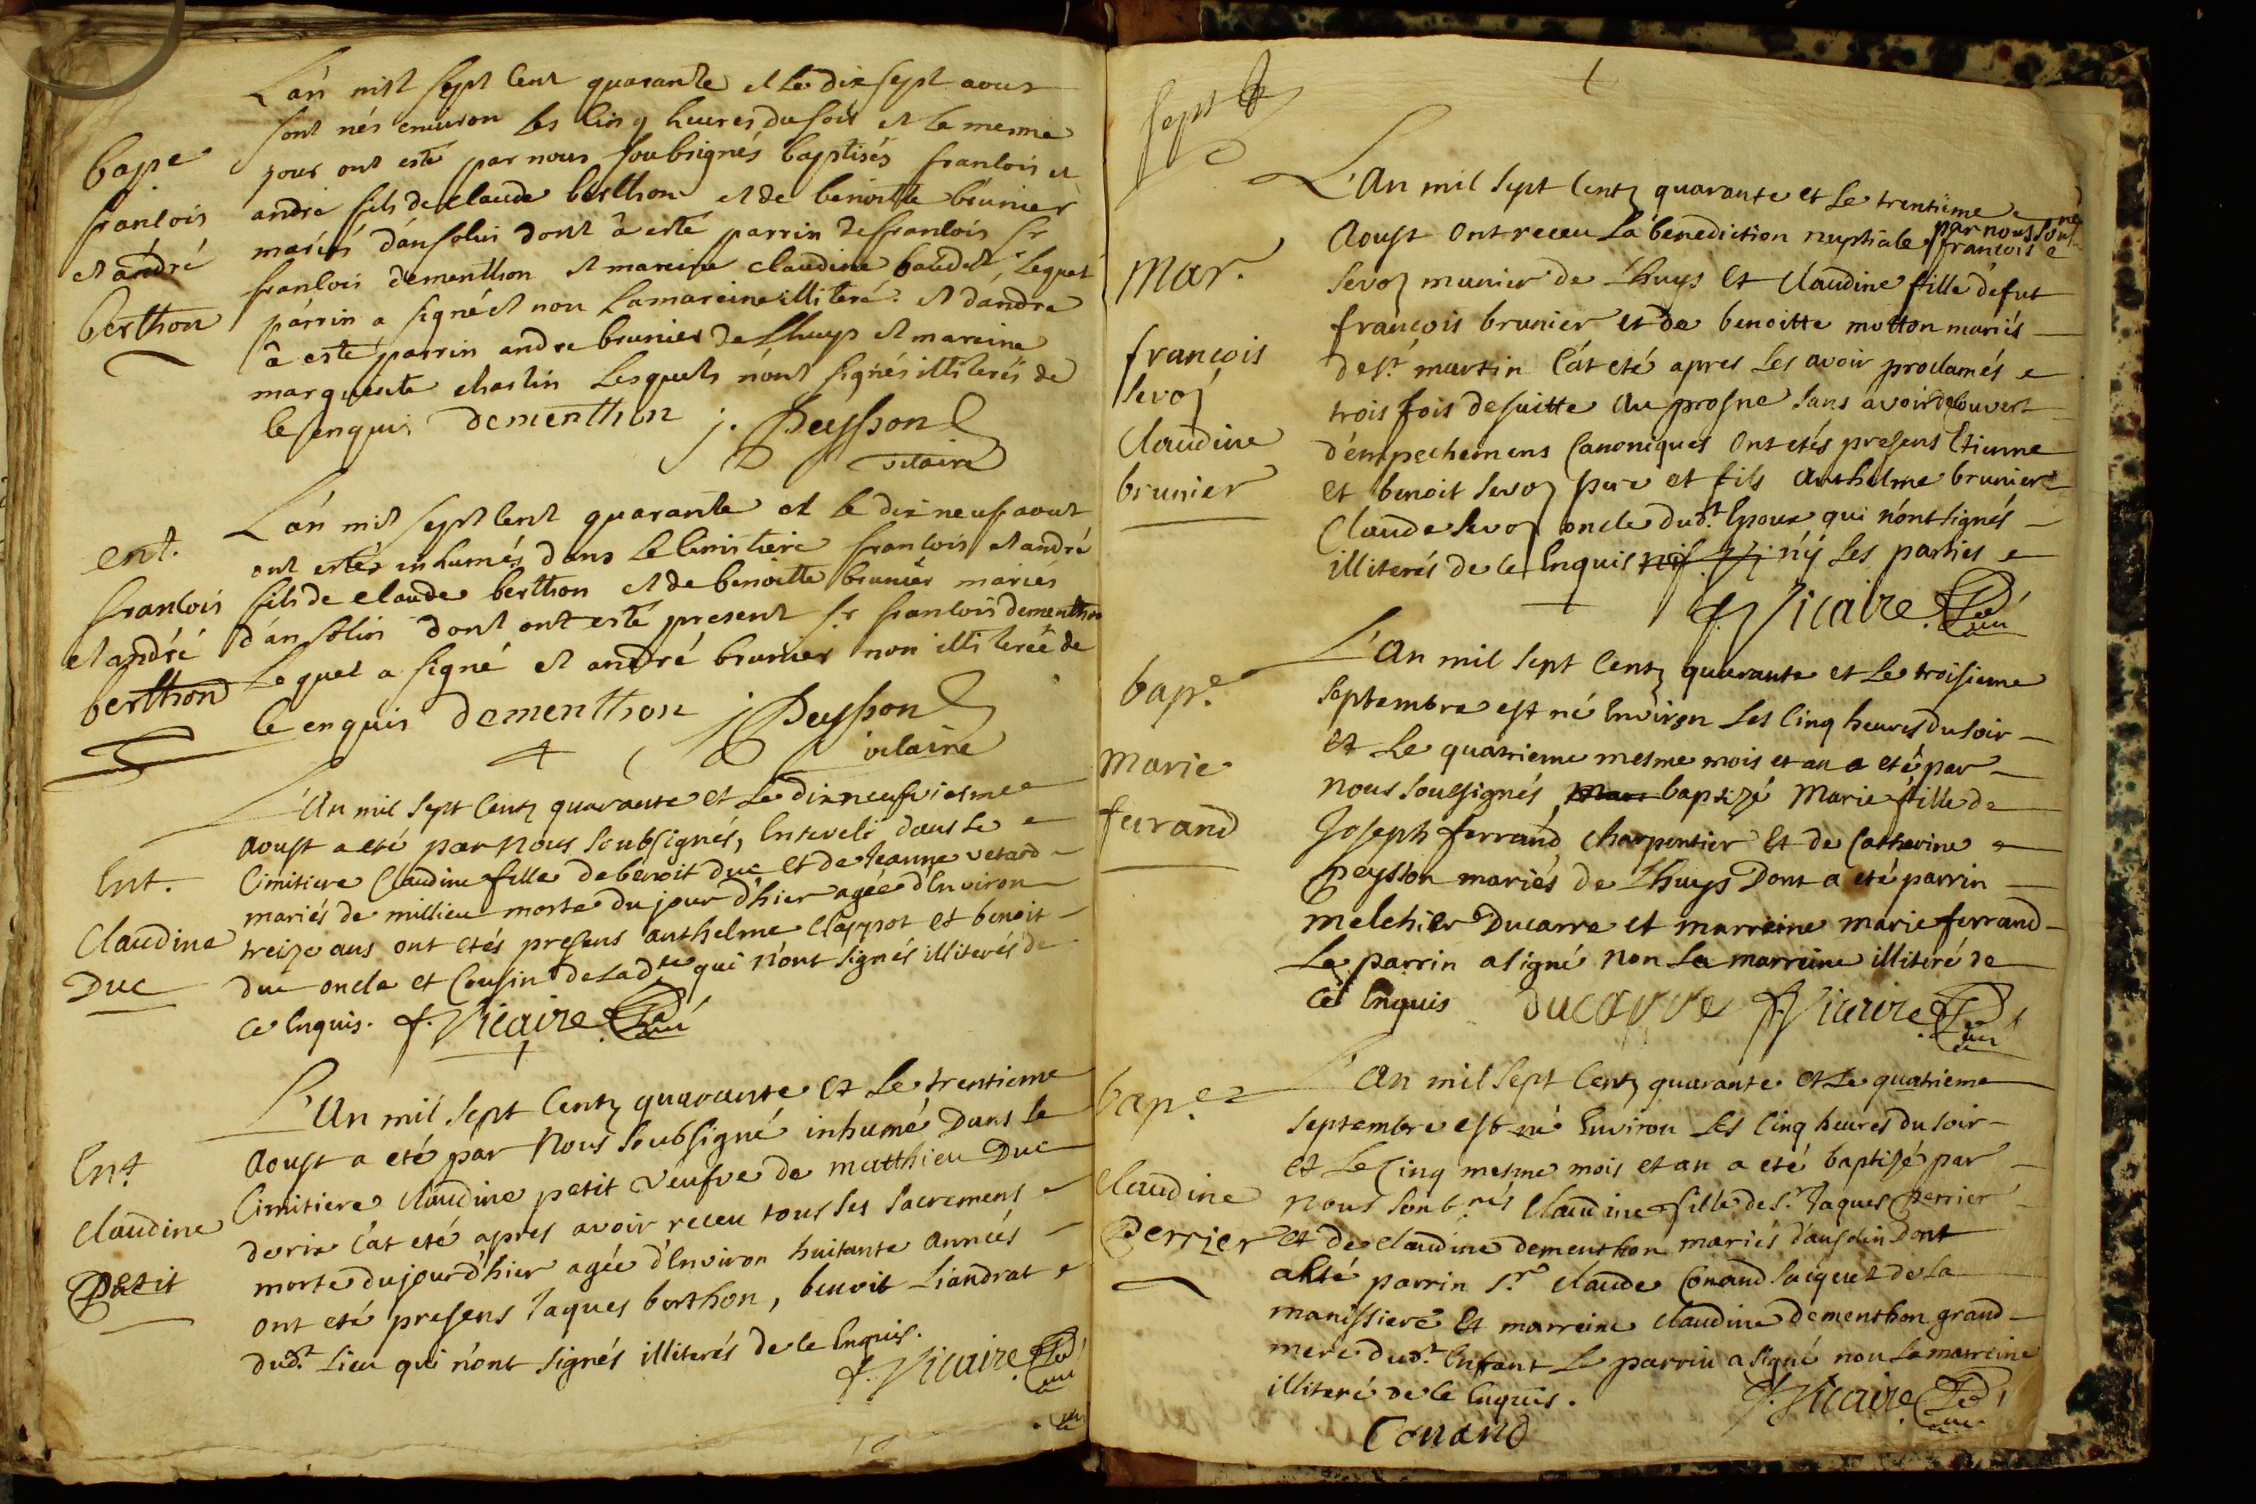 bap.e
francois
et andré
berthon
L'an mil sept cent quarante et le dix sept aout
sont nés environ les cinq heures du soir et le mesme
jour ont esté par nous soubsignés baptisés francois et
andré fils de claude berthon et de benoitte brunier
mariés d'ansolin dont à esté parrin de francois sr
francois dementhon et mareine claudine baudet, lequel
parrin a signé et non la mareine illiteré. et d'andre
à esté parrin andre brunier de Lhuys et mareine
marguerite charlin lesquels n'ont signés illiterés de
ce enquis dementhon j. Peysson
vicaire
ent.
francois
et andré
berthon
L'an mil sept cent quarante et le dix neuf aout
ont estés inhumés dans le cimitiere francois et andré
fils de claude berthon et de benoitte brunier mariés
d'ansolin dont ont esté present sr francois dementhon
lequel a signé et andré brunier non illiteré de
ce enquis dementhon j Peysson
vicaire
Ent.
Claudine
Duc
L'An mil sept Cent quarante et le dixneufviesme
Aoust a eté par Nous Soubsignés, Enseveli dans le
Cimitiere Claudine fille de benoit Duc et de Jeanne vetard
mariés de millieu morte du jour d'hier agée d'Environ
treize ans ont etés presens anthelme Clappot et benoit
duc oncle et Cousin de Ladte qui n'ont Signés illiterés de
Ce Enquis. f. Vicaire Curé
Ent
Claudine
Petit
L'An mil sept Cent quarante et Le trentieme
Aoust a eté par Nous Soubsigné inhumé Dans le
Cimitiere Claudine petit veufve de matthieu Duc
de rix C'at eté apres avoir receu tous les Sacremens
morte du jourd'hier agée d'Environ huitante Années
ont eté presens Jaques berthon, benoit Liandrat
dudt Lieu qui n'ont Signés illiterés de Ce Enquis.
f. Vicaire Curé
sept b
Mar.
françois
Sevoz
Claudine
brunier
L'An mil Sept Cent quarante et Le trentieme
Aoust Ont receu La benediction nuptiale par nous sousné françois
Sevoz munier de Lhuys Et Claudine fille defut
françois brunier et de benoitte motton mariés
de st martin C'at eté apres Les avoir proclamés
trois fois de suitte Au prosne Sans avoir decouvert
d'empechemens Canoniques Ont etés presens Etienne
Et benoit Sevoz pere et fils Anthelme brunier
Claude Sevoz oncle dudt Epoux qui n'ont signés
illiterés de Ce Enquis n'y Les parties
f. Vicaire Curé
bap.e
Marie
ferrand
L'An mil Sept Cent quarante et Le troisieme
Septembre est né Environ Les Cinq heures du Soir
Et Le quatrieme mesme mois et an a eté par
Nous Soussignés baptizé Marie fille de
Joseph ferrand Charpentier Et de Catherine
Peysson mariés de Lhuys Dont a eté parrin
melchier Ducarre et marreine marie ferrand
Le parrin a signé Non La marreine illiteré de
Ce Enquis ducarre f. Vicaire Curé
bap.e
Claudine
Perrier
L'An mil Sept Cent quarante et Le quatrieme
Septembre est né Environ Les Cinq heures du Soir
Et Le Cinq mesme mois et an a eté baptizé par
Nous Soubnés Claudine fille de sr Jaques Perrier
Et de Claudine dementhon mariés d'ansolin Dont
a Eté parrin Sr Claude Conand Jacquet de La
manissiere Et marreine Claudine dementhon grand
mere dudt Enfant Le parrin a Signé non La marreine
illiteré de Ce Enquis. f. Vicaire Curé
Conand